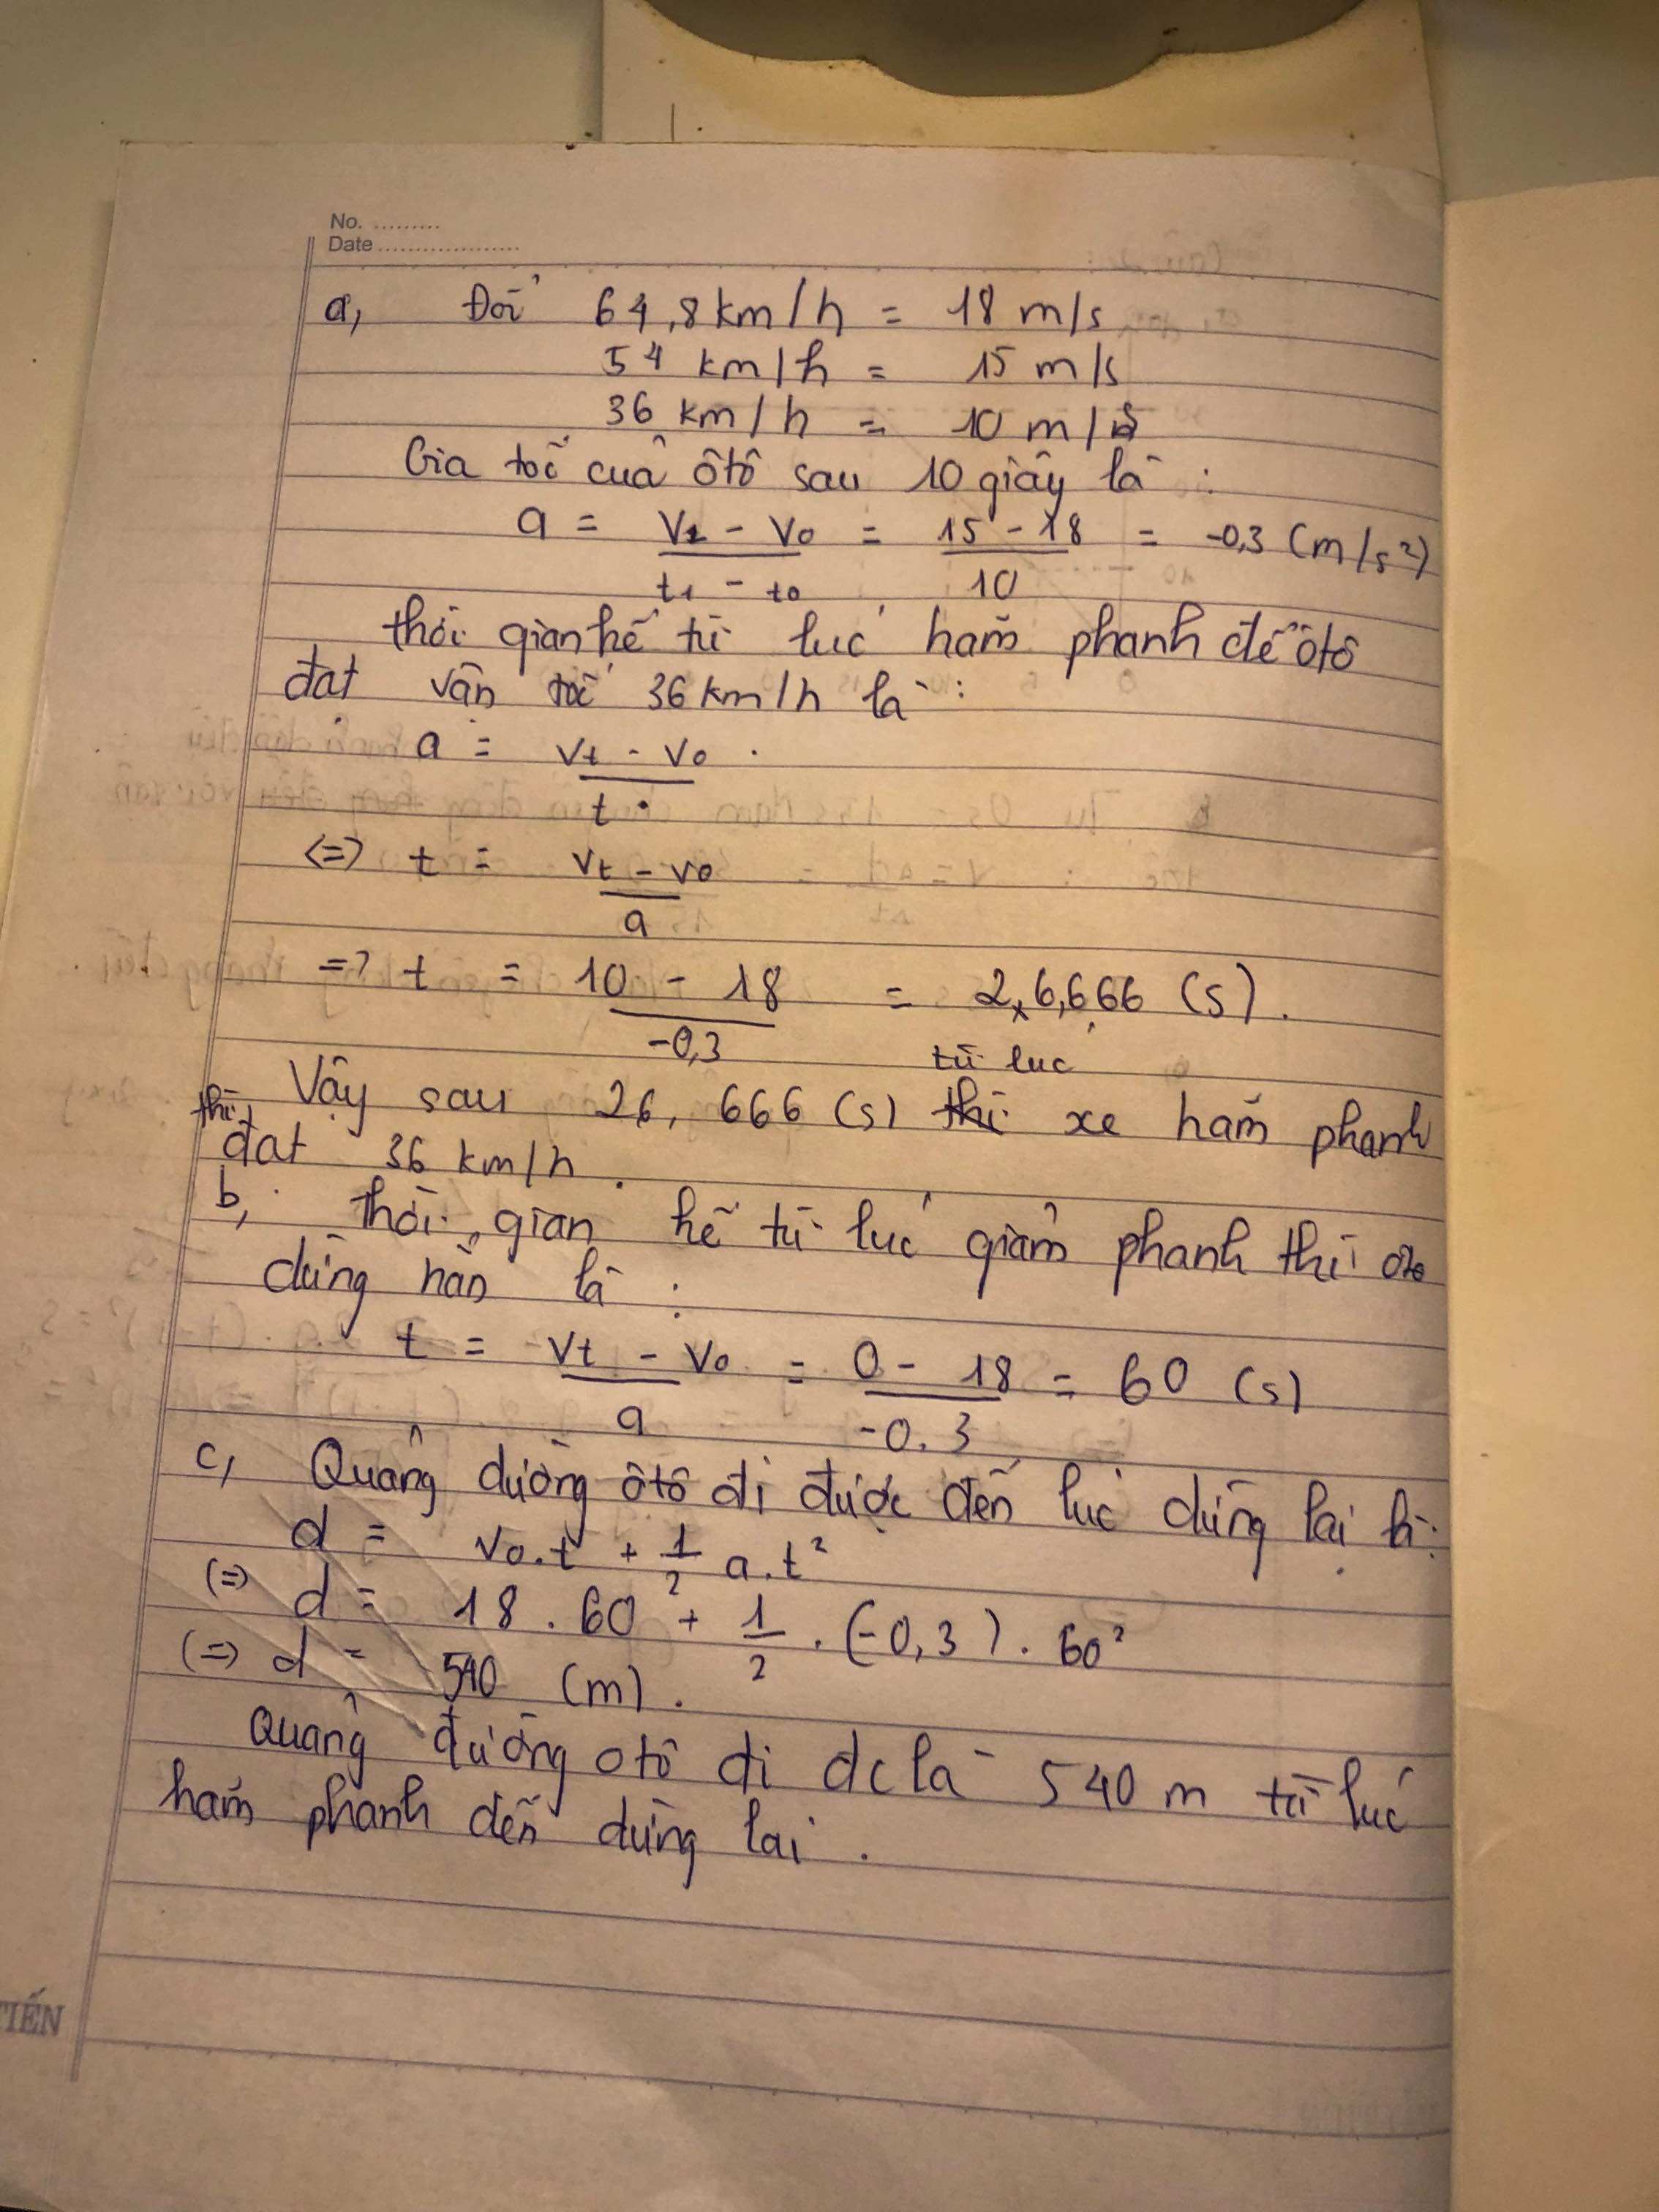 No. .........
Date ...................
a, Đổi 64,8 km/h = 18 m/s
54 km/h = 15 m/s
36 km/h = 10 m/s
Gia tốc của ôtô sau 10 giây là :
a = v1 - v0 / t1 - t0 = 15 - 18 / 10 = -0,3 (m/s²)
thời gian kể từ lúc hãm phanh để ôtô
đạt vận tốc 36 km/h là :
a = vt - v0 / t
<=> t = vt - v0 / a
=> t = 10 - 18 / -0,3 = 26,666 (s).
từ lúc
Vậy sau 26,666 (s) thì xe hãm phanh
thì đạt 36 km/h.
b, thời gian kể từ lúc giảm phanh thì oto
dừng hẳn là :
t = vt - v0 / a = 0 - 18 / -0.3 = 60 (s)
c, Quãng đường ôtô đi được đến lúc dừng lại là:
d = v0.t + 1/2 a.t²
(=) d = 18 . 60 + 1/2 . (-0,3) . 60²
(=) d = 540 (m).
Quãng đường otô đi dc là 540 m từ lúc
hãm phanh đến dừng lại .
TIẾN